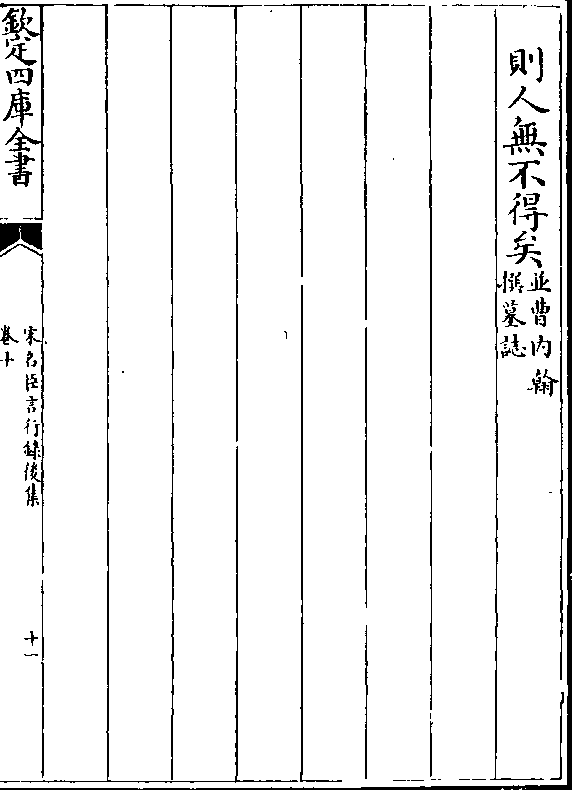 則人無不得矣並曹内翰
撰墓誌
欽定四庫全書
宋名臣言行録後集
卷十
十一